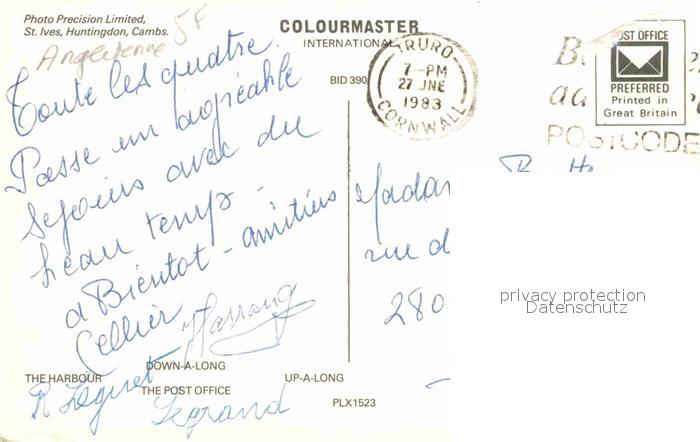 Photo Precision Limited,
St. Ives, Huntingdon, Cambs.
Angleterre 5F
COLOURMASTER
INTERNATIONAL
BID 390
TRURO
7-PM
27 JNE
1983
CORNWALL
POST OFFICE
PREFERRED
Printed in
Great Britain
POSTCODE
Toute les quatre
Passe un agréable
Sejours avec du
beau temps -
a Bientot - amitiés
Cellier Harrang
R Leguet
Legrand
Madam
rue d
280
privacy protection
Datenschutz
DOWN-A-LONG
THE HARBOUR
THE POST OFFICE
UP-A-LONG
PLX1523